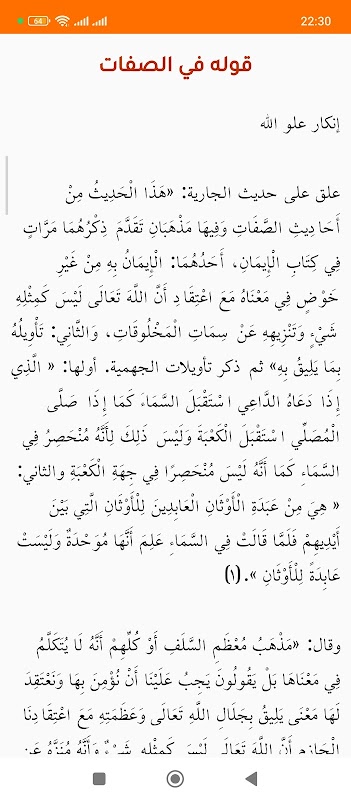 64 22:30
قوله في الصفات
إنكار علو الله
علق على حديث الجارية: «هَذَا الْحَدِيثُ مِنْ
أَحَادِيثِ الصِّفَاتِ وَفِيهَا مَذْهَبَانِ تَقَدَّمَ ذِكْرُهُمَا مَرَّاتٍ
فِي كِتَابِ الْإِيمَانِ، أَحَدُهُمَا: الْإِيمَانُ بِهِ مِنْ غَيْرِ
خَوْضٍ فِي مَعْنَاهُ مَعَ اعْتِقَادِ أَنَّ اللَّهَ تَعَالَى لَيْسَ كَمِثْلِهِ
شَيْءٌ وَتَنْزِيهِهِ عَنْ سِمَاتِ الْمَخْلُوقَاتِ، وَالثَّانِي: تَأْوِيلُهُ
بِمَا يَلِيقُ بِهِ» ثم ذكر تأويلات الجهمية. أولها: « الَّذِي
إِذَا دَعَاهُ الدَّاعِي اسْتَقْبَلَ السَّمَاءَ كَمَا إِذَا صَلَّى
الْمُصَلِّي اسْتَقْبَلَ الْكَعْبَةَ وَلَيْسَ ذَلِكَ لِأَنَّهُ مُنْحَصِرٌ فِي
السَّمَاءِ كَمَا أَنَّهُ لَيْسَ مُنْحَصِرًا فِي جِهَةِ الْكَعْبَةِ والثاني:
« هِيَ مِنْ عَبَدَةِ الْأَوْثَانِ الْعَابِدِينَ لِلْأَوْثَانِ الَّتِي بَيْنَ
أَيْدِيهِمْ فَلَمَّا قَالَتْ فِي السَّمَاءِ عَلِمَ أَنَّهَا مُوَحِّدَةٌ وَلَيْسَتْ
عَابِدَةً لِلْأَوْثَانِ ». (١)
وقال: «مَذْهَبُ مُعْظَمِ السَّلَفِ أَوْ كُلِّهِمْ أَنَّهُ لَا يُتَكَلَّمُ
فِي مَعْنَاهَا بَلْ يَقُولُونَ يَجِبُ عَلَيْنَا أَنْ نُؤْمِنَ بِهَا وَنَعْتَقِدَ
لَهَا مَعْنًى يَلِيقُ بِجَلَالِ اللَّهِ تَعَالَى وَعَظَمَتِهِ مَعَ اعْتِقَادِنَا
الْجَازِمِ أَنَّ اللَّهَ تَعَالَى لَيْسَ كَمِثْلِهِ شَيْءٌ وَأَنَّهُ مُنَزَّهٌ عَنِ